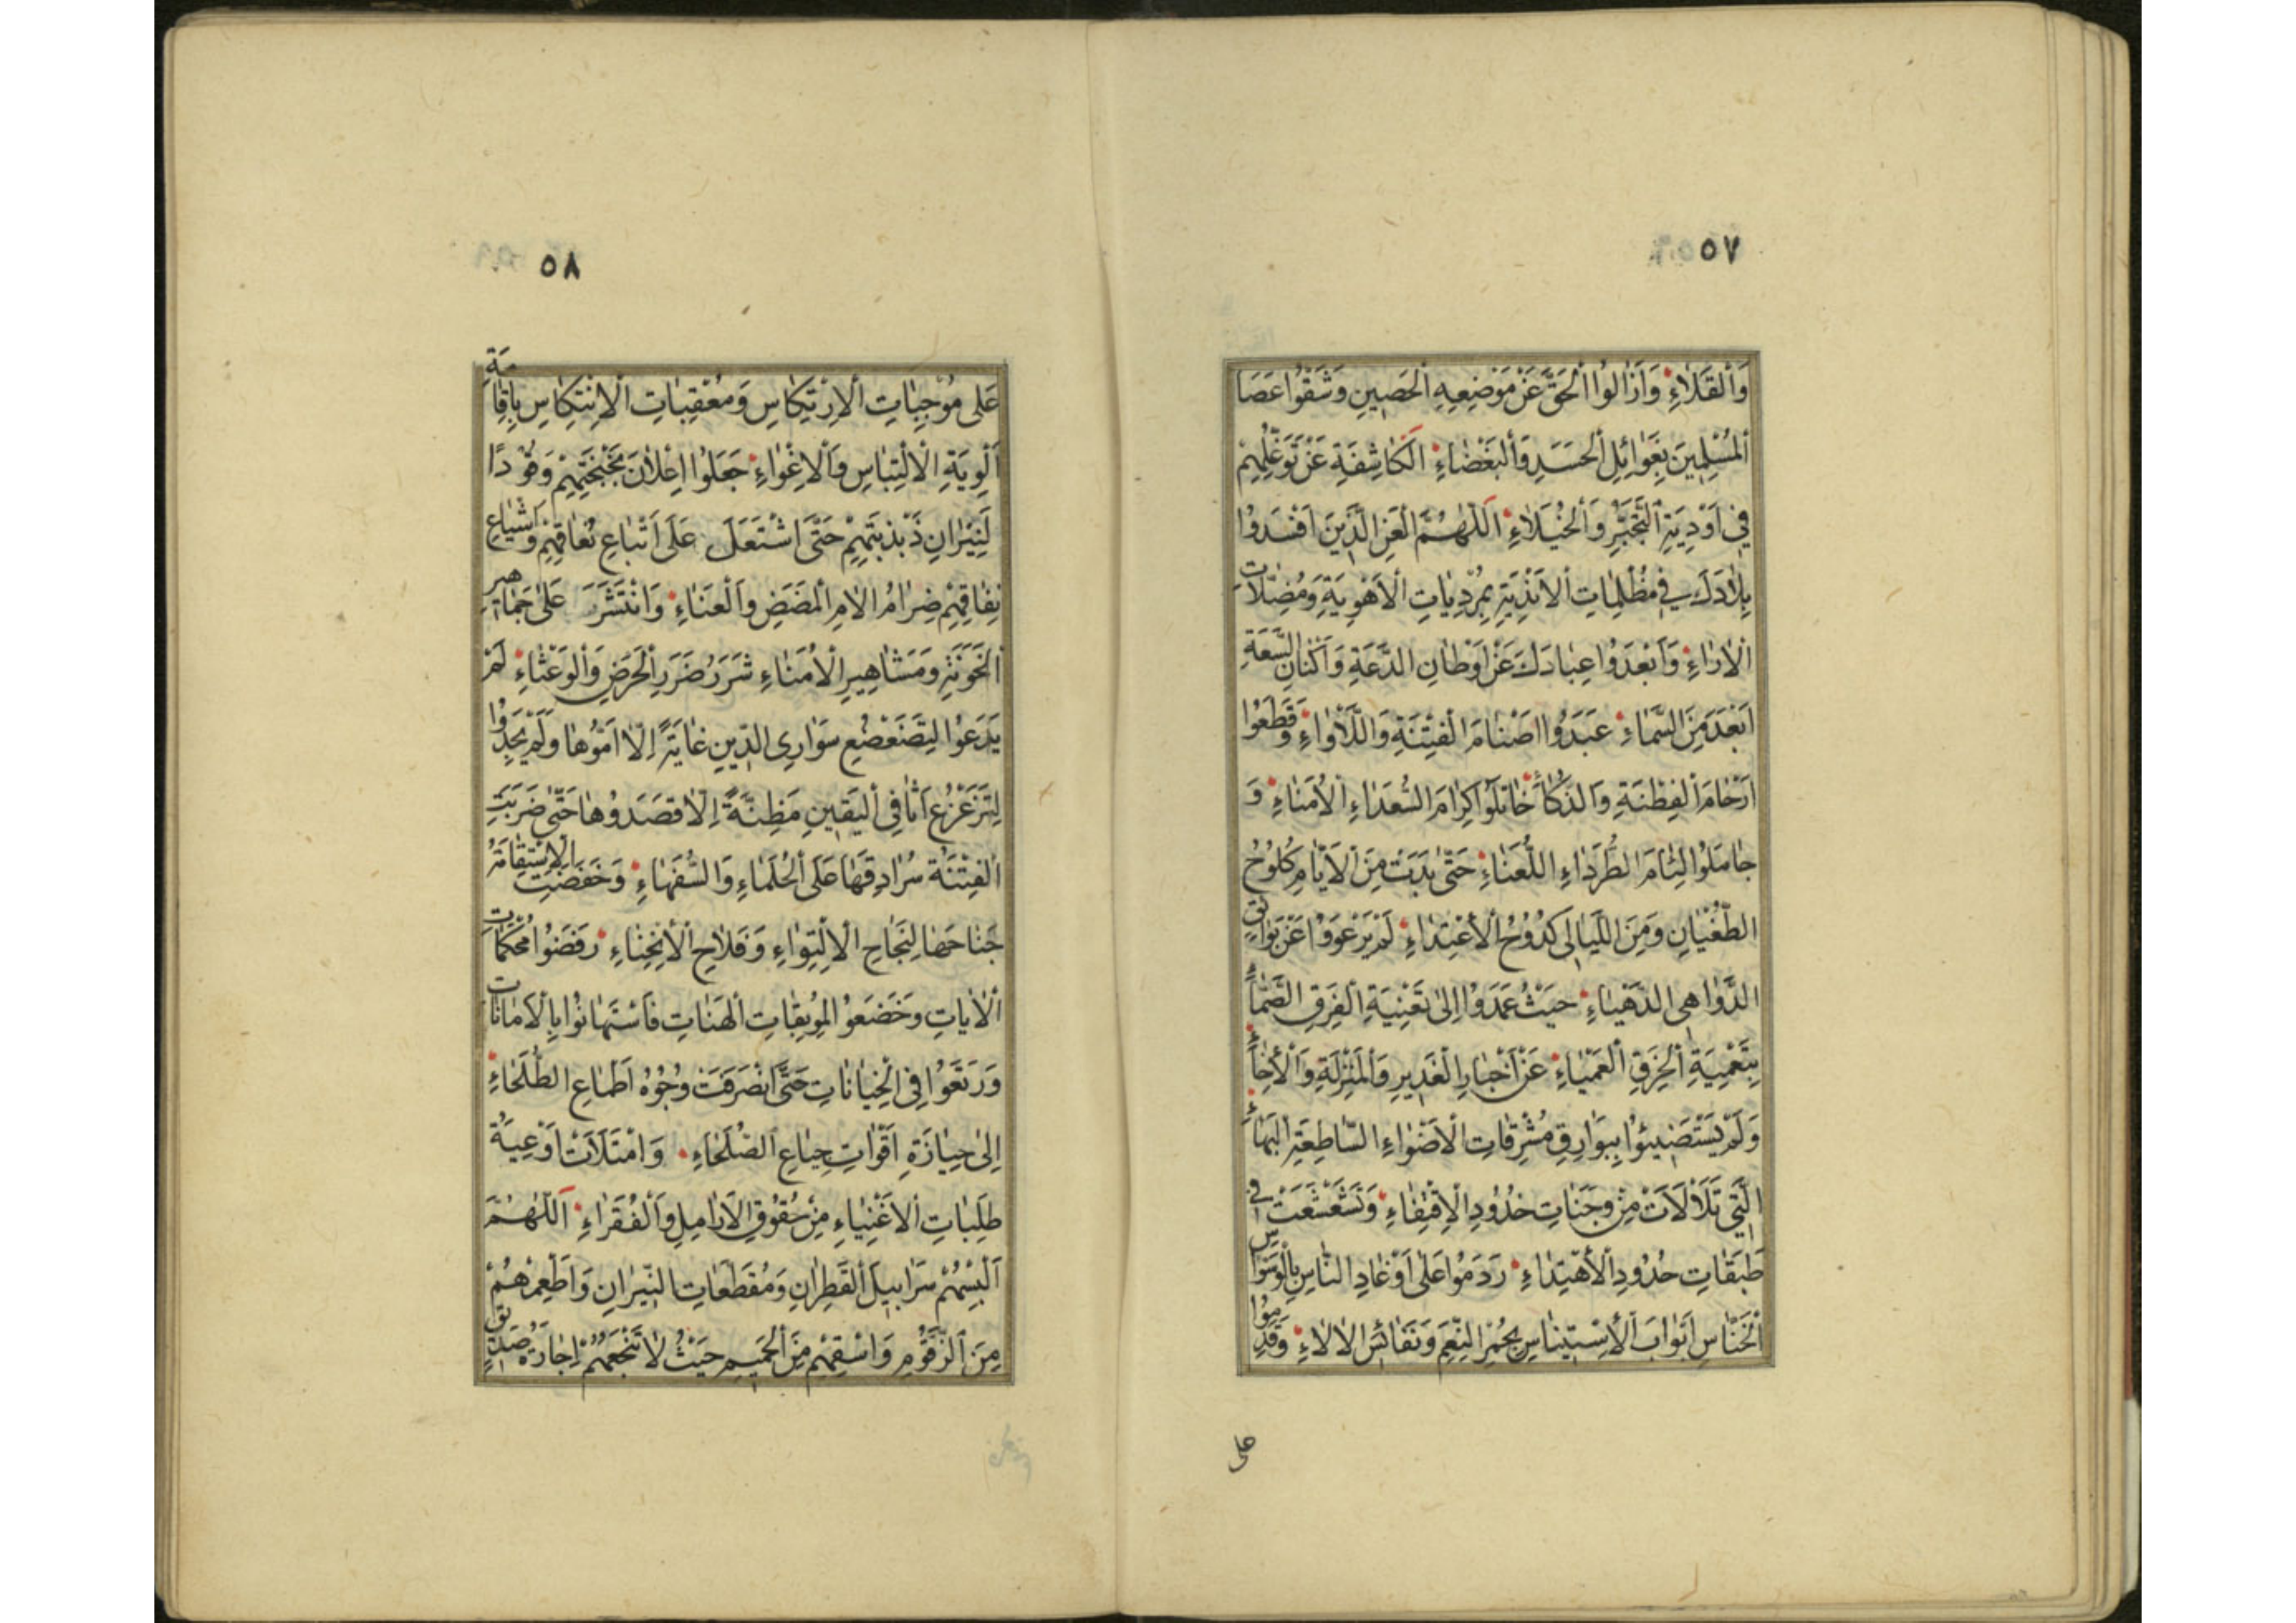 ٥٧
وَالْقَلَاءِ وَاَزَالُوا الْحَقَّ عَنْ مَوْضِعِهِ الْحَصِينِ وَشَقُّوا عَصَا
الْمُسْلِمِينَ بِغَوَائِلِ الْحَسَدِ وَالْبَغْضَاءِ الْكَاشِفَةِ عَنْ تَوَغُّلِهِمْ
فِي اَوْدِيَةِ التَّجَبُّرِ وَالْخُيَلَاءِ اَللّٰهُمَّ الْعَنِ الَّذِينَ اَفْسَدُوا
بِلَادَكَ فِي مُظْلِمَاتِ الْاَنْدِيَةِ بِمُرْدِيَاتِ الْاَهْوِيَةِ وَمُضِلَّاتِ
الْاٰرَاءِ وَاَبْعَدُوا عِبَادَكَ عَنْ اَوْطَانِ الدَّعَةِ وَاَكْنَانِ السَّعَةِ
اَبْعَدَ مِنَ السَّمَاءِ عَبَدُوا اَصْنَامَ الْفِتْنَةِ وَاللَّأْوَاءِ وَقَطَعُوا
اَرْحَامَ الْفِطْنَةِ وَالذَّكَاءِ خَاتَلُوا كِرَامَ السُّعَدَاءِ الْاُمَنَاءِ وَ
جَامَلُوا لِئَامَ الطُّرَدَاءِ اللُّعَنَاءِ حَتّٰى بَدَتْ مِنَ الْاَيَّامِ كُلُوحُ
الطُّغْيَانِ وَمِنَ اللَّيَالِي كُدُوحُ الْاِعْتِدَاءِ لَمْ يَرْعَوُوا عَنْ بَوَائِقِ
الدَّوَاهِي الدَّهْيَاءِ حَيْثُ عَمَدُوا اِلٰى تَعْنِيَةِ الْفِرَقِ الصَّمَّاءِ
بِتَعْمِيَةِ الْخِرَقِ الْعَمْيَاءِ عَنْ اَخْبَارِ الْغَدِيرِ وَالْمَنْزِلَةِ وَالْاِخَاءِ
وَلَمْ يَسْتَضِيئُوا بِبَوَارِقِ مُشْرِقَاتِ الْاَضْوَاءِ السَّاطِعَةِ الْبَهَاءِ
الَّتِي تَلَأْلَأَتْ مِنْ وَجَنَاتِ خُدُودِ الْاِقْتِفَاءِ وَتَشَعْشَعَتْ فِي
طَبَقَاتِ حُدُودِ الْاِهْتِدَاءِ رَدَمُوا عَلٰى اَوْغَادِ النَّاسِ بِالْوَسْوَاسِ
الْخَنَّاسِ اَبْوَابَ الْاِسْتِينَاسِ بِحُمْرِ النِّعَمِ وَنَفَائِسِ الْاٰلَاءِ وَقَدِمُوا
على
٥٨
عَلٰى مُوجِبَاتِ الْاِرْتِكَاسِ وَمُعْقِبَاتِ الْاِنْتِكَاسِ بِاِقَامَةِ
اَلْوِيَةِ الْاِلْتِبَاسِ وَالْاِغْوَاءِ جَعَلُوا اِعْلَانَ بَخْبَخَتِهِمْ وَقُودًا
لَنِيْرَانِ ذَبْذَبَتِهِمْ حَتَّى اشْتَعَلَ عَلٰى اَتْبَاعِ نُعَاقِهِمْ وَاَشْيَاعِ
نِفَاقِهِمْ ضِرَامُ الْاٰمِ الْمَضَضِ وَالْعَنَاءِ وَانْتَشَرَ عَلٰى جَمَاهِيرِ
الْخَوَنَةِ وَمَشَاهِيرِ الْاُمَنَاءِ شَرَرُ ضَرَرِ الْحَرَضِ وَالْوَعْثَاءِ لَمْ
يَدَعُوْا لِتَضَعْضُعِ سَوَارِي الدِّينِ غَايَةً اِلَّا اَمُّوهَا وَلَمْ يَجِدُوا
لِتَزَعْزُعِ اَثَافِي الْيَقِينِ مَظِنَّةً اِلَّا قَصَدُوهَا حَتّٰى ضَرَبَتِ
الْفِتْنَةُ سُرَادِقَهَا عَلَى الْحُلَمَاءِ وَالسُّفَهَاءِ وَخَفَضَتِ الْاِسْتِقَامَةُ
جَنَاحَهَا لِنَجَاحِ الْاِلْتِوَاءِ وَفَلَاحِ الْاِنْحِنَاءِ رَفَضُوا مُحْكَمَاتِ
الْاٰيَاتِ وَخَضَعُوا لِمُوبِقَاتِ الْهَنَاتِ فَاسْتَهَانُوا بِالْاَمَانَاتِ
وَرَتَعُوا فِي الْخِيَانَاتِ حَتَّى انْصَرَفَتْ وُجُوهُ اَطْمَاعِ الطُّلَحَاءِ
اِلٰى حِيَازَةِ اَقْوَاتِ جِيَاعِ الصُّلَحَاءِ وَامْتَلَأَتْ اَوْعِيَةُ
طَلِبَاتِ الْاَغْنِيَاءِ مِنْ حُقُوقِ الْاَرَامِلِ وَالْفُقَرَاءِ اَللّٰهُمَّ
اَلْبِسْهُمْ سَرَابِيلَ الْقَطِرَانِ وَمُقَطَّعَاتِ النِّيرَانِ وَاَطْعِمْهُمْ
مِنَ الزَّقُّومِ وَاسْقِهِمْ مِنَ الْحَمِيمِ حَيْثُ لَا تَنْجَعُهُمْ اِجَارَةُ صَدِيقٍ